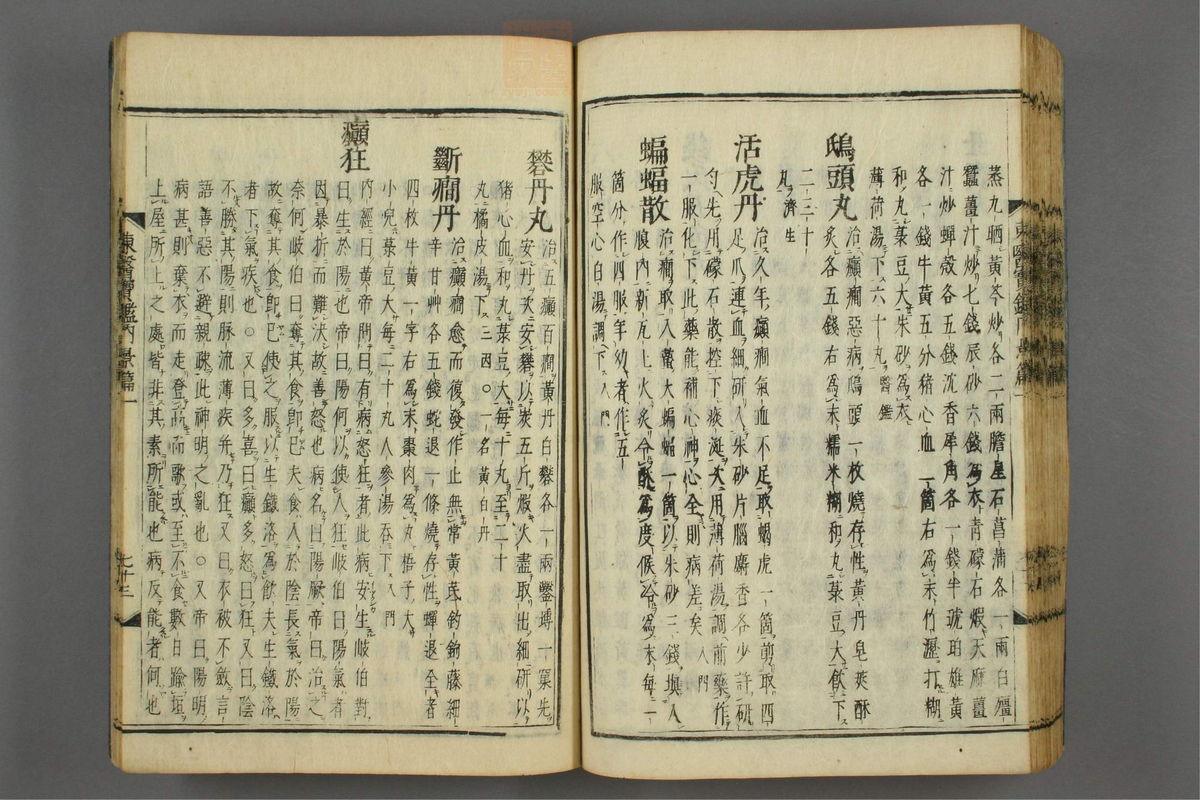 蒸九晒黃芩炒各二兩膽星石菖蒲各一兩白殭
蠶薑汁炒七錢辰砂六錢爲衣青礞石煆天麻薑
汁炒蟬殼各五錢沈香犀角各一錢半琥珀雄黃
各一錢牛黃五分猪心血一箇右爲末竹瀝打糊
和丸菉豆大朱砂爲衣
薄荷湯下六十丸 醫鑑
鴟頭丸 治癲癎惡病鴟頭一枚燒存性黃丹皂莢酥
炙各五錢右爲末糯米糊和丸菉豆大飮下
二三十
丸 濟生
活虎丹 治久年癲癎氣血不足取蝎虎一箇剪取四
足爪連血細硏入朱砂片腦麝香各少許硏
勻先用礞石散控下痰涎次用薄荷湯調前藥作
一服化下此藥能補心神心全則病差矣 入門
蝙蝠散 治癎取入蟄大蝙蝠一箇以朱砂三錢塡入
腹內新瓦上火炙令酥爲度候冷爲末每一
箇分作四服年幼者作五
服空心白湯調下 入門
礬丹丸 治五癲百癎黃丹白礬各一兩鑿塼一窠先
安丹次安礬以炭五斤煆火盡取出細硏以
猪心血和丸菉豆大每十丸至二十
丸橘皮湯下 三因○一名黃白丹
斷癎丹 治癲癎愈而復發作止無常黃芪鉤藤細
辛甘艸各五錢蛇退一條燒存性蟬退全者
四枚牛黃一字右爲末棗肉爲丸梧子大
小兒菉豆大每二十丸人參湯呑下 入門
癲狂
內經曰黃帝問曰有病怒狂者此病安生岐伯對
曰生於陽也帝曰陽何以使人狂岐伯曰陽氣者
因暴折而難決故善怒也病名曰陽厥帝曰治之
奈何岐伯曰奪其食卽已夫食入於陰長氣於陽
故奪其食卽已使之服以生鐵洛爲飮夫生鐵洛
者下氣疾也○又曰多喜曰癲多怒曰狂○又曰陰
不勝其陽則脉流薄疾幷乃狂又曰衣被不斂言
語善惡不避親疎此神明之亂也○又帝曰陽明
病甚則棄衣而走登高而歌或至不食數日踰垣
上屋所上之處皆非其素所能也病反能者何也
東醫寶鑑內景篇一
七十三
東醫寶鑑內景篇一